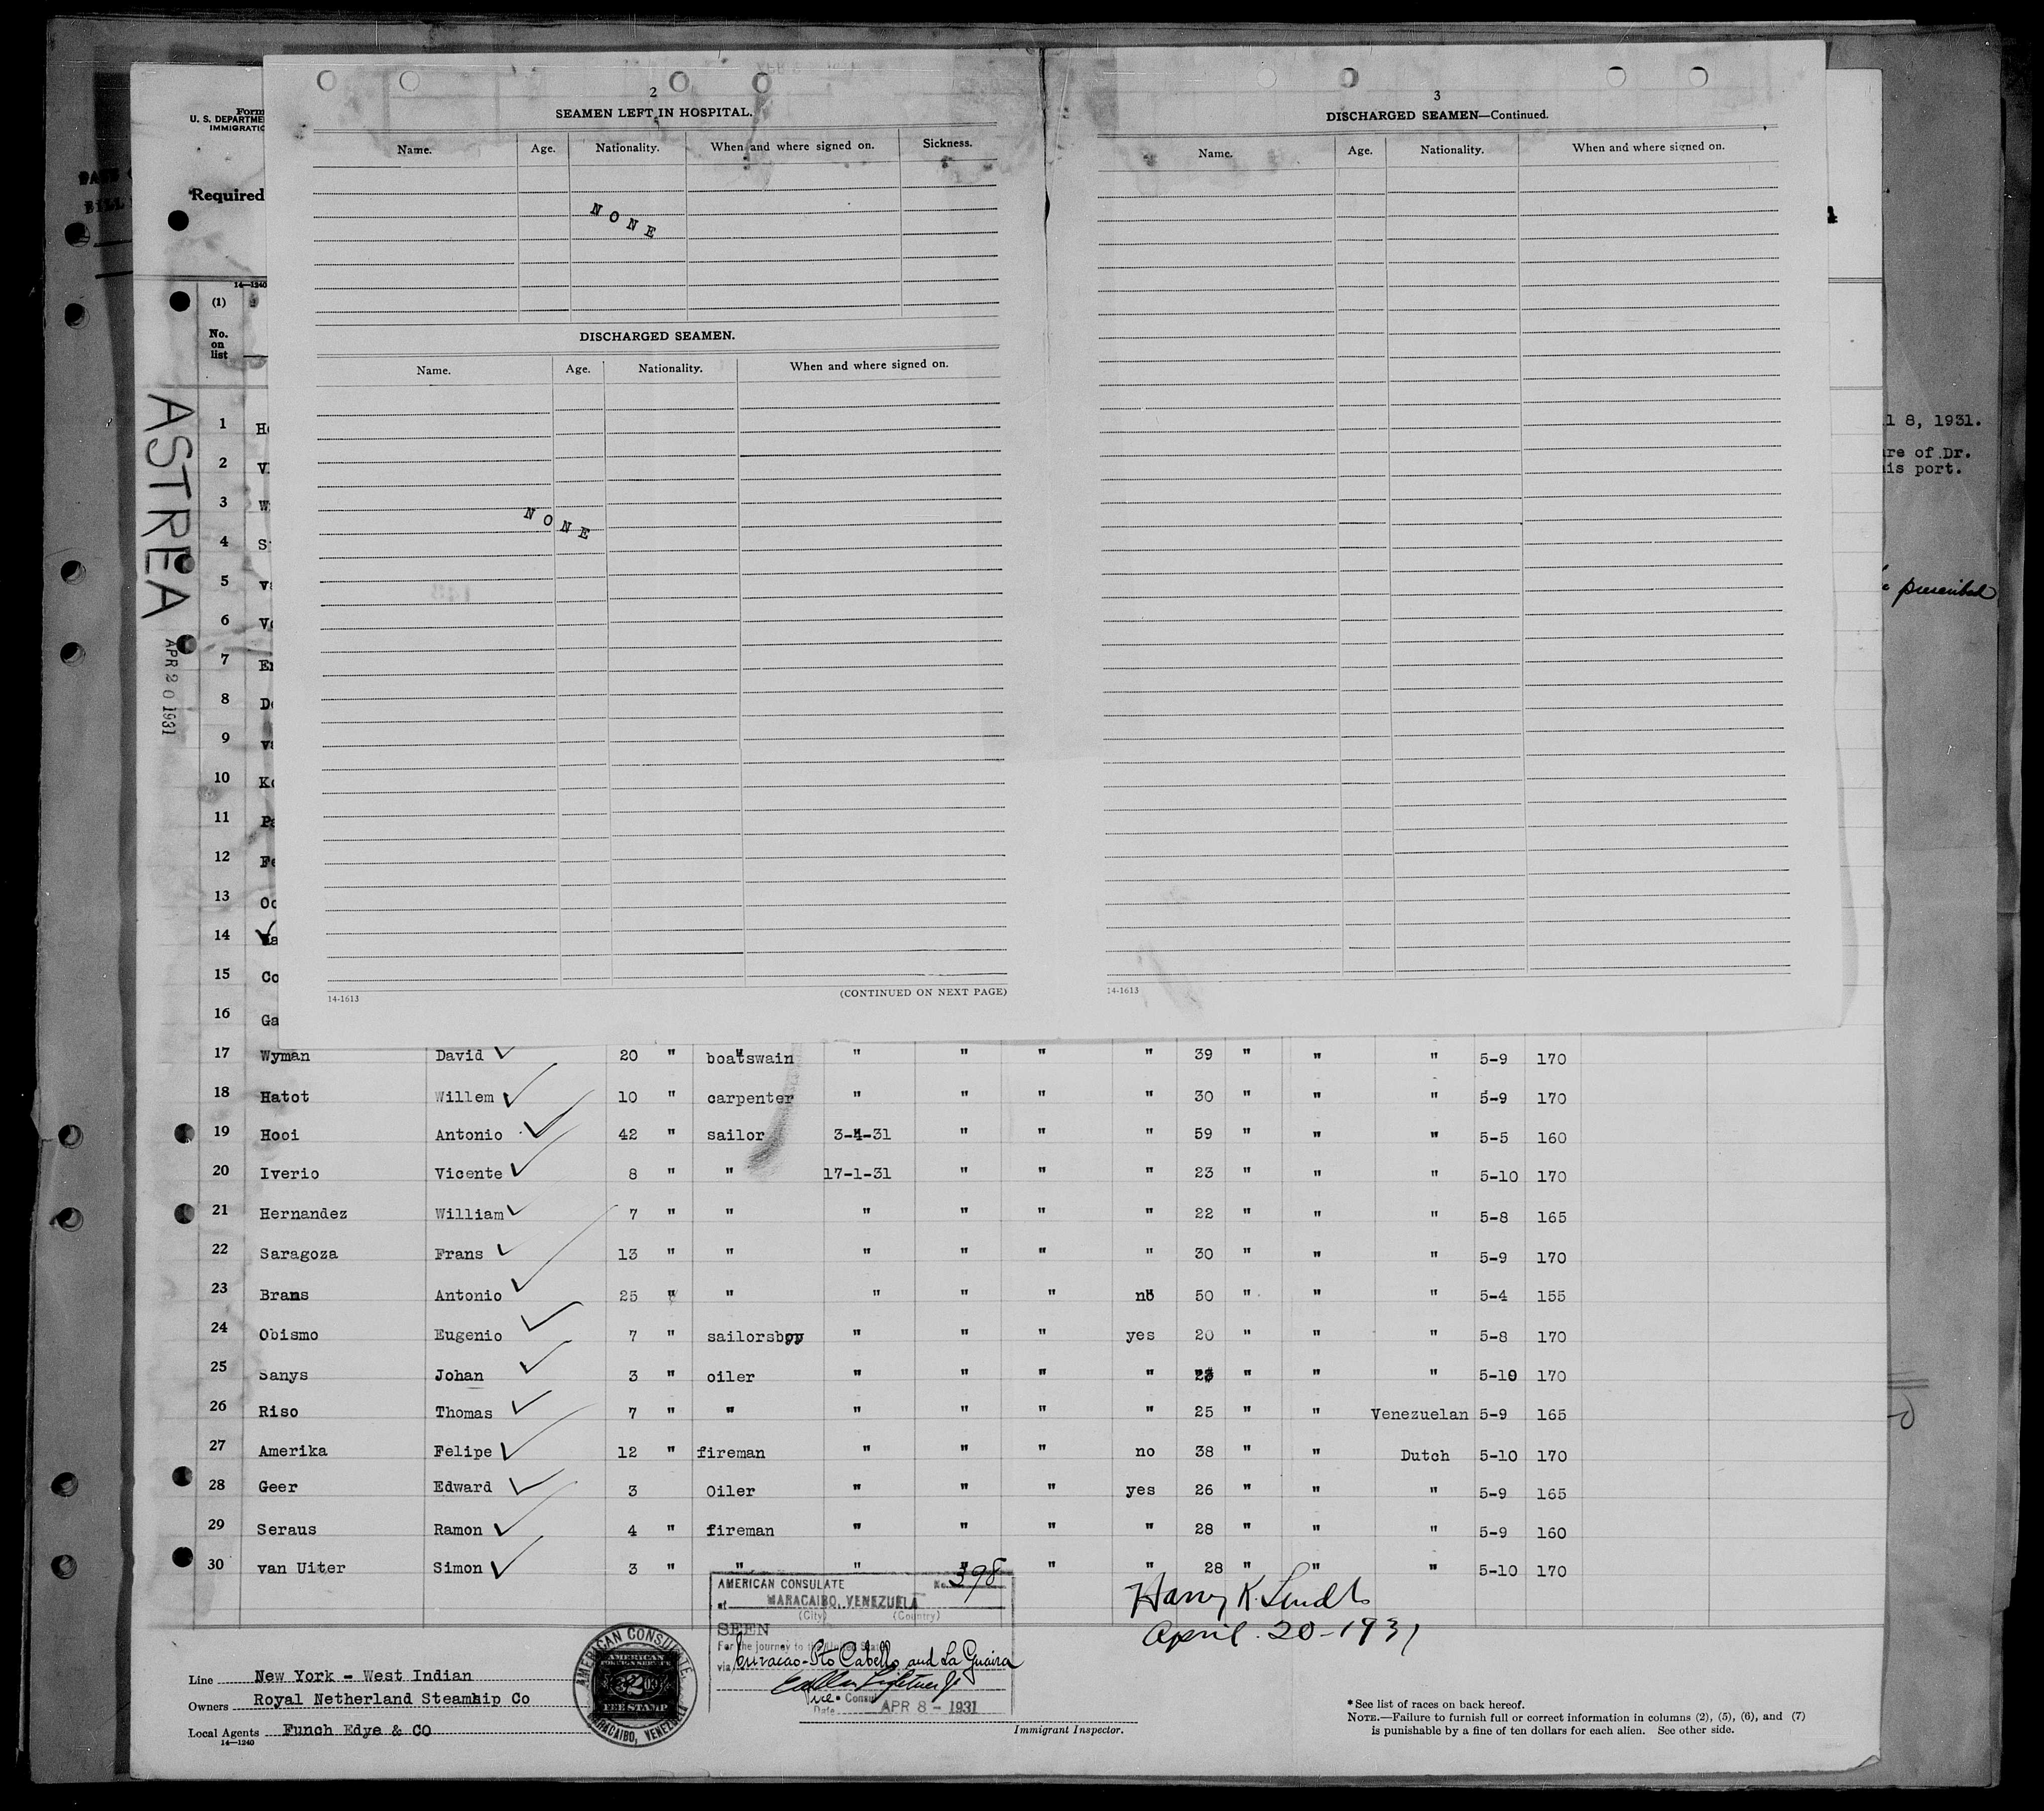 2
SEAMEN LEFT IN HOSPITAL.
Name. Age. Nationality. When and where signed on. Sickness.
NONE
DISCHARGED SEAMEN.
Name. Age. Nationality. When and where signed on.
NONE
14-1613 (CONTINUED ON NEXT PAGE)
3
DISCHARGED SEAMEN—Continued.
Name. Age. Nationality. When and where signed on.
14-1613
Form
U. S. DEPARTME
IMMIGRATIO
Required
14—1240
(1)
No.
on
list
ASTREA
APR 20 1931
1
2
3
4
5
6
7
8
9
10
11
12
13
14
15 Co
16 Ga
l 8, 1931.
re of Dr.
is port.
17 Wyman David 20 " boatswain " " " " 39 " " " 5-9 170
18 Hatot Willem 10 " carpenter " " " " 30 " " " 5-9 170
19 Hooi Antonio 42 " sailor 3-4-31 " " " 59 " " " 5-5 160
20 Iverio Vicente 8 " " 17-1-31 " " " 23 " " " 5-10 170
21 Hernandez William 7 " " " " " " 22 " " " 5-8 165
22 Saragoza Frans 13 " " " " " " 30 " " " 5-9 170
23 Brans Antonio 25 " " " " " no 50 " " " 5-4 155
24 Obismo Eugenio 7 " sailorsboy " " " yes 20 " " " 5-8 170
25 Sanys Johan 3 " oiler " " " " " " " 5-10 170
26 Riso Thomas 7 " " " " " " 25 " " Venezuelan 5-9 165
27 Amerika Felipe 12 " fireman " " " no 38 " " Dutch 5-10 170
28 Geer Edward 3 Oiler " " " yes 26 " " " 5-9 165
29 Seraus Ramon 4 " fireman " " " " 28 " " " 5-9 160
30 van Uiter Simon 3 " " " " " " 28 " " " 5-10 170
AMERICAN CONSULATE No. 398
at MARACAIBO, VENEZUELA
(City) (Country)
SEEN
For the journey to the United States
via Curacao-Pto Cabello and La Guaira
Vice Consul
Date APR 8 - 1931
AMERICAN CONSULATE,
MARACAIBO, VENEZUELA
AMERICAN
FOREIGN SERVICE
2
FEE STAMP
Harry K. 
April. 20-1931
Line New York - West Indian
Owners Royal Netherland Steamship Co
Local Agents Funch Edye & CO
14—1240
Immigrant Inspector.
*See list of races on back hereof.
NOTE.—Failure to furnish full or correct information in columns (2), (5), (6), and (7)
is punishable by a fine of ten dollars for each alien. See other side.